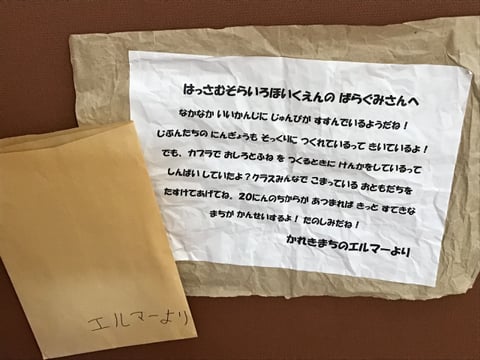 はっさむそらいろほいくえんの ばらぐみさんへ
なかなか いいかんじに じゅんびが すすんでいるようだね！
じぶんたちの にんぎょうも そっくりに つくれているって きいているよ！
でも、カプラで おしろとふね を つくるときに けんかをしているって
しんぱい していたよ？クラスみんなで こまっている おともだちを
たすけてあげてね。20にんのちからが あつまれば きっと すてきな
まちが かんせいするよ！ たのしみだね！
かれきまちのエルマーより
エルマーより